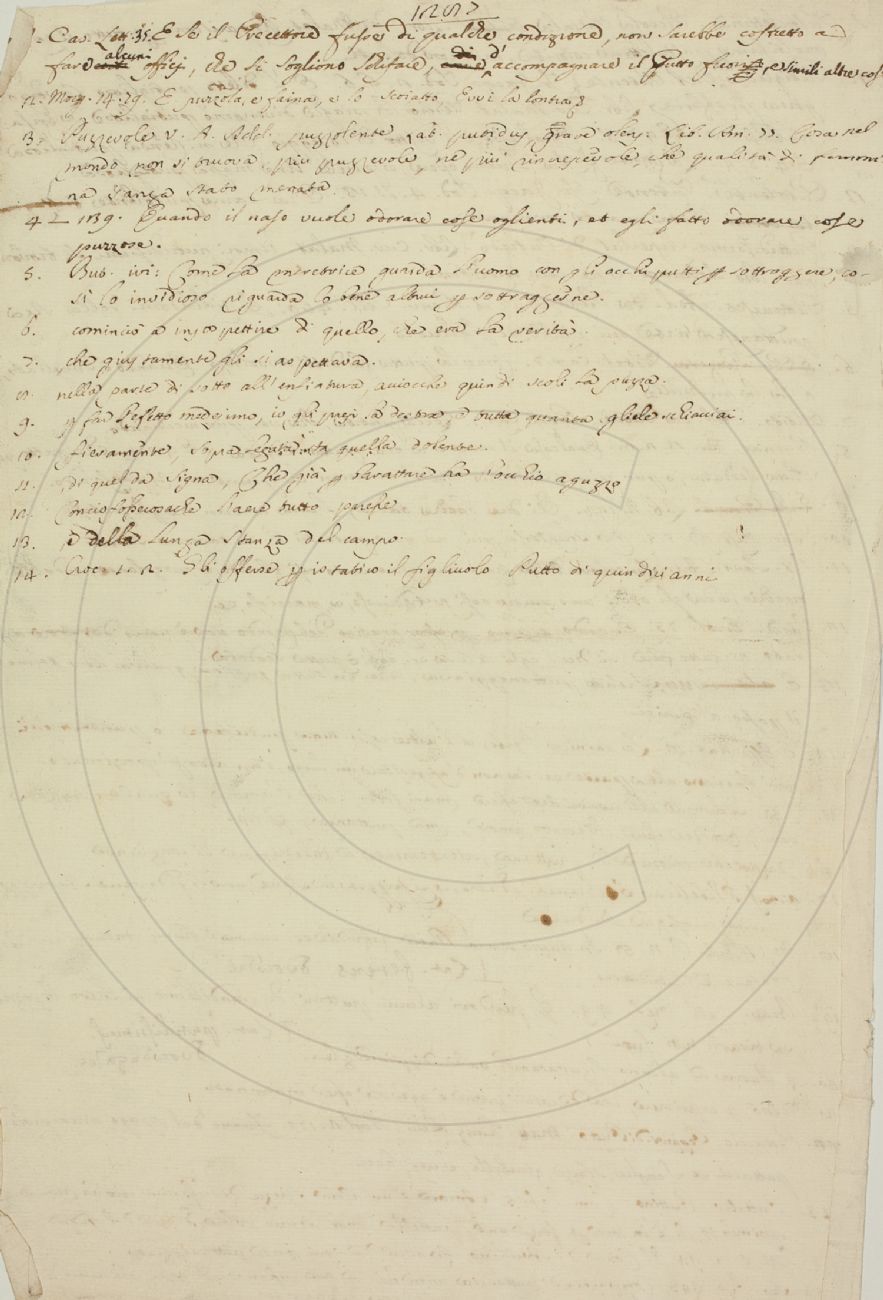 1287
1. Cas. Lett. 35. E se il Precettore fusse di qualche condizione, non sarebbe costretto a
fare alcuni offizj, che si sogliono schifare, di d'accompagnare il Putto fuora, e simili altre cose
2. Morg. 14. 79. E puzzola, e faina, e lo scoiatto, Evvi la lontra
3. Puzzevole V. A. Add. puzzolente Lat. putidus, grave olens. Lib. Am. 77. Cosa nel
mondo non si truova più puzzevole, nè più rincrescevole, che qualità di femmi
na sanza stato menata.
4 — 139. Quando il naso vuole odorare cose oglienti, ed egli fatto odorare cose
puzzose.
5. But. ivi: Come la meretrice guarda l'uomo con gli occhi putti p sottraggere, co-
sì lo invidioso riguarda lo bene altrui p sottraggerne.
6. cominciò a insospettire di quello, che era la verità.
7. che giustamente gli si aspettava.
8. nella parte di sotto all'enfiatura, acciocchè quindi scoli la puzza.
9. p far l'effetto medesimo, io gli presi la destra, e tutta quanta gliele schiacciai.
10. fieramente, sopra quella dolente.
11. di quel da Signa, Che già p barattare ha l'occhio aguzzo
12. Conciofossecosachè l'aere tutto puzzasse
13. e della lunga stanza del campo.
14. Croc. 1. 2. Gli offerse p istatico il figliuolo Putto di quindici anni